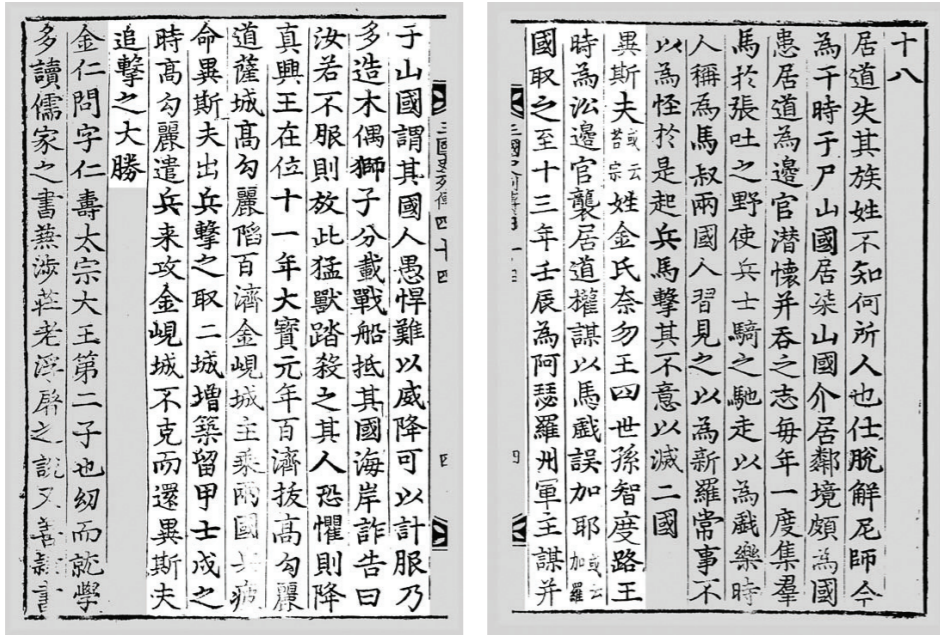 十八
居道失其族姓不知何所人也仕脫解尼師今
為干時于尸山國居柒山國介居鄰境頗為國
患居道為邊官潜懷并吞之志毎年一度集羣
馬於張吐之野使兵士騎之馳走以為戲樂時
人稱為馬叔兩國人習見之以為新羅常事不
以為怪於是起兵馬擊其不意以滅二國
異斯夫或云苔宗姓金氏奈勿王四世孫智度路王
時為沿邊官襲居道權謀以馬戲誤加耶或云加羅
國取之至十三年壬辰為阿瑟羅州軍主謀并
四
三國史列傳四十四
四
于山國謂其國人愚悍難以威降可以計服乃
多造木偶獅子分載戰船抵其國海岸詐告曰
汝若不服則放此猛獸踏殺之其人恐懼則降
真興王在位十一年大寶元年百濟拔高勾麗
道薩城高勾麗陷百濟金峴城主乘兩國兵疲
命異斯夫出兵擊之取二城增築留甲士戍之
時高勾麗遣兵来攻金峴城不克而還異斯夫
追擊之大勝
金仁問字仁壽太宗大王第二子也幼而就學
多讀儒家之書兼涉莊老浮屠之說又善隷書